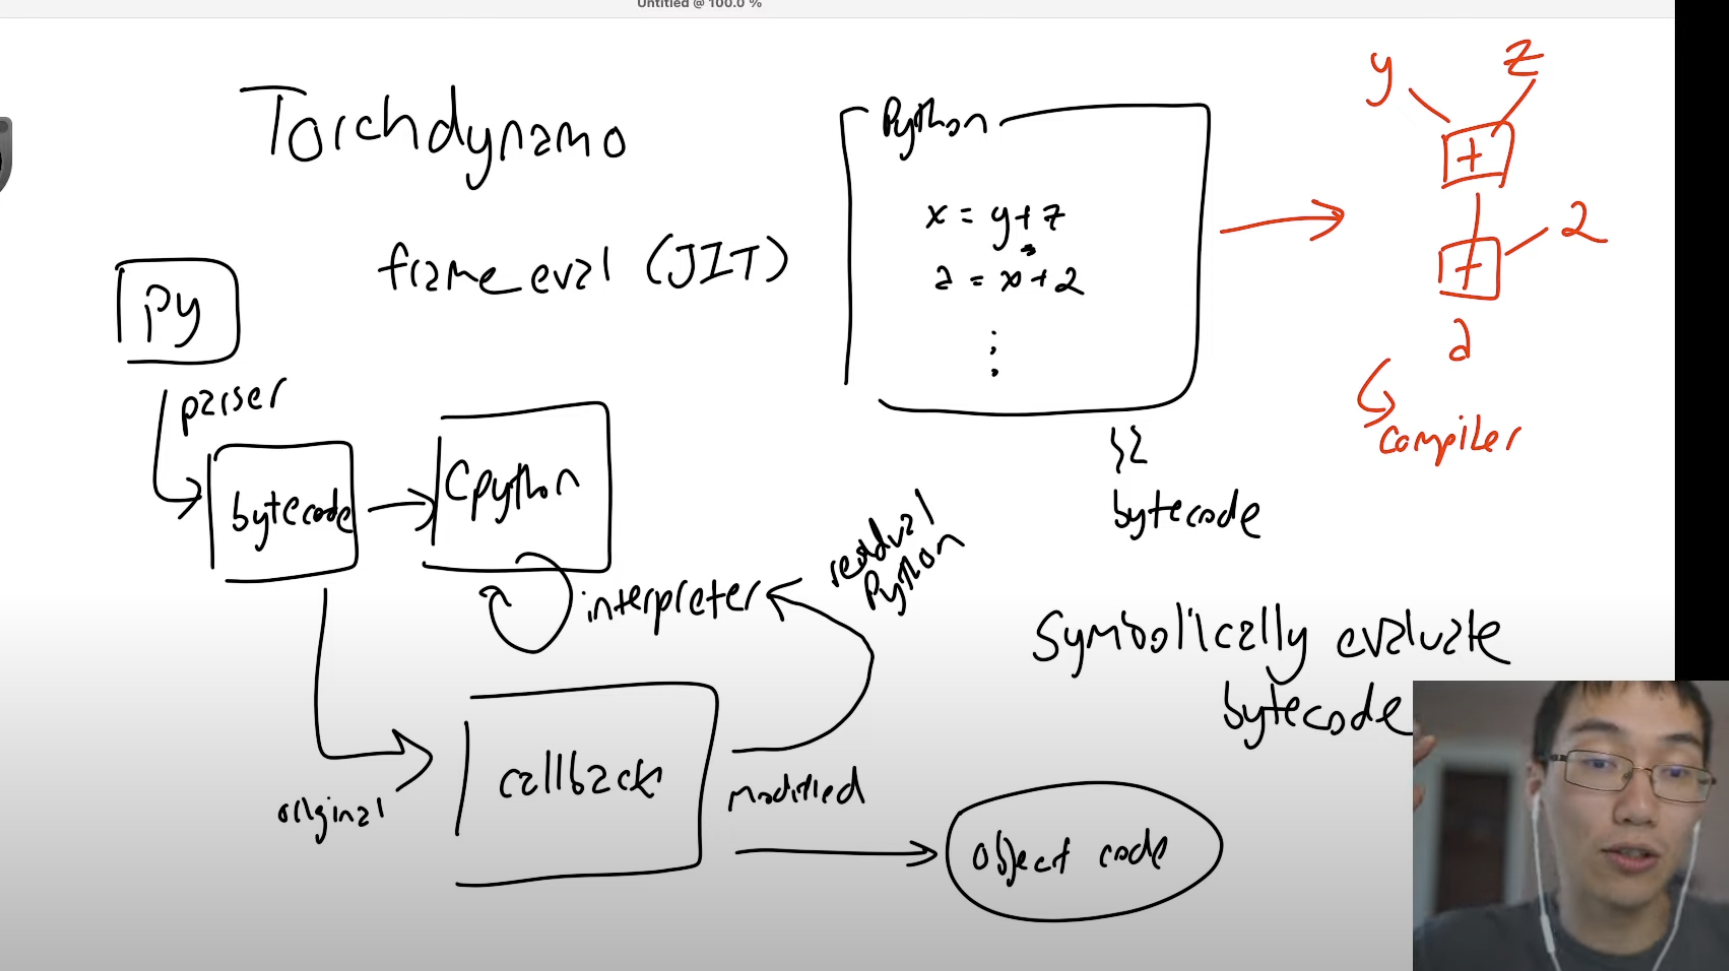 Untitled @ 100.0 %
Torchdynamo
frame_eval (JIT)
Py
parser
bytecode
Cpython
interpreter
original
callback
modified
residual
Python
object code
Python
x = y + z
a = x + 2
bytecode
Symbolically evaluate
bytecode
y z
+
+ 2
a
compiler